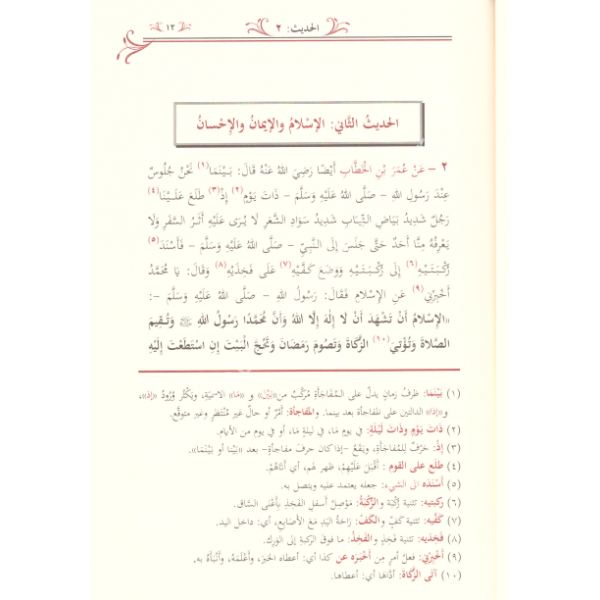 الحديث: ٢
١٣
الحَدِيثُ الثَّانِي: الإِسْلَامُ وَالإِيمَانُ وَالإِحْسَانُ
٢ – عَنْ عُمَرَ بْنِ الخَطَّابِ أَيْضًا رَضِيَ اللهُ عَنْهُ قَالَ: بَيْنَمَا(١) نَحْنُ جُلُوسٌ
عِنْدَ رَسُولِ اللهِ – صَلَّى اللهُ عَلَيْهِ وَسَلَّمَ – ذَاتَ يَوْمٍ(٢) إِذْ(٣) طَلَعَ عَلَيْنَا(٤)
رَجُلٌ شَدِيدُ بَيَاضِ الثِّيَابِ شَدِيدُ سَوَادِ الشَّعَرِ لَا يُرَى عَلَيْهِ أَثَرُ السَّفَرِ وَلَا
يَعْرِفُهُ مِنَّا أَحَدٌ حَتَّى جَلَسَ إِلَى النَّبِيِّ – صَلَّى اللهُ عَلَيْهِ وَسَلَّمَ – فَأَسْنَدَ(٥)
رُكْبَتَيْهِ(٦) إِلَى رُكْبَتَيْهِ وَوَضَعَ كَفَّيْهِ(٧) عَلَى فَخِذَيْهِ(٨) وَقَالَ: يَا مُحَمَّدُ
أَخْبِرْنِي(٩) عَنِ الإِسْلَامِ فَقَالَ: رَسُولُ اللهِ – صَلَّى اللهُ عَلَيْهِ وَسَلَّمَ –:
«الإِسْلَامُ أَنْ تَشْهَدَ أَنْ لَا إِلَهَ إِلَّا اللهُ وَأَنَّ مُحَمَّدًا رَسُولُ اللهِ ﷺ وَتُقِيمَ
الصَّلَاةَ وَتُؤْتِيَ(١٠) الزَّكَاةَ وَتَصُومَ رَمَضَانَ وَتَحُجَّ الْبَيْتَ إِنِ اسْتَطَعْتَ إِلَيْهِ
(١) بَيْنَمَا: ظرفُ زمانٍ يدلّ على المُفَاجأةِ مُرَكَّبٌ من «بَيْنَ» و «مَا» الاسمِيّة، ويَكْثُر وُرُودُ «إِذْ»،
و«إِذَا» الدالتين على المفاجأة بعد بينما. والمفاجأة: أَمْرٌ أو حالٌ غير مُنْتَظَرٍ وغير متوقَّع.
(٢) ذَاتَ يَوْمٍ وذَاتَ لَيْلَةٍ: في يومٍ مَا، في ليلةٍ مَا، أو في يومٍ من الأيام.
(٣) إِذْ: حَرْفٌ للمُفاجأةِ، ويَقَعُ –إذا كان حرفَ مفاجأةٍ– بعد «بَيْنَا أو بَيْنَمَا».
(٤) طَلَع على القوم: أَقْبَلَ عَلَيْهِمْ، ظهر لهم، أي أتَاهُمْ.
(٥) أَسْنَدَه الى الشيء: جعله يعتمد عليه ويتصل به.
(٦) ركبتيه: تثنية رُكْبَة والرُّكْبَةُ: مَوْصِلُ أسفلِ الفَخِذِ بأَعْلَى السَّاق.
(٧) كَفَّيه: تثنية كَفٍّ والكَفّ: رَاحَةُ اليَدِ مَعَ الأَصَابِعِ، أي: داخل اليد.
(٨) فَخِذَيه: تثنية فَخِذٍ والفَخِذُ: ما فوقَ الرّكبةِ إلى الوَرِك.
(٩) أَخْبِرْنِي: فعلُ أمرٍ من أَخْبَرَه عن كذا أي: أعطاه الخبَرَ، وأَعْلَمَهُ، وأَنْبَأَهُ به.
(١٠) آتَى الزَّكَاةَ: أدَّاهَا أي: أعطاها.